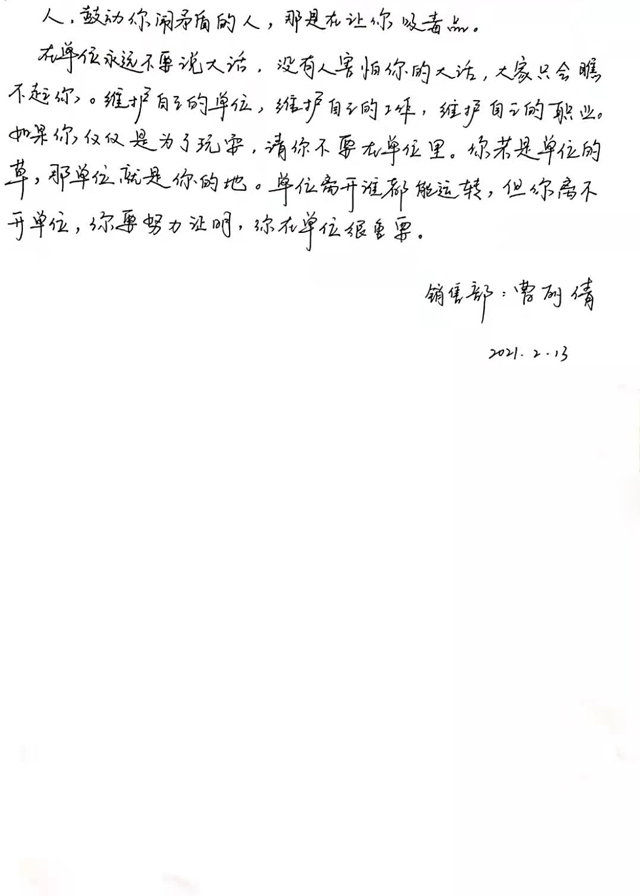 人，鼓动你闹矛盾的人，那是在让你吸毒品。
在单位永远不要说大话，没有人害怕你的大话，大家只会瞧
不起你，。维护自己的单位，维护自己的工作，维护自己的职业。
如果你仅仅是为了玩耍，请你不要在单位里。你若是单位的
草，那单位就是你的地。单位离开谁都能运转，但你离不
开单位，你要努力证明，你在单位很重要。
销售部：曹丽倩
2021.2.13